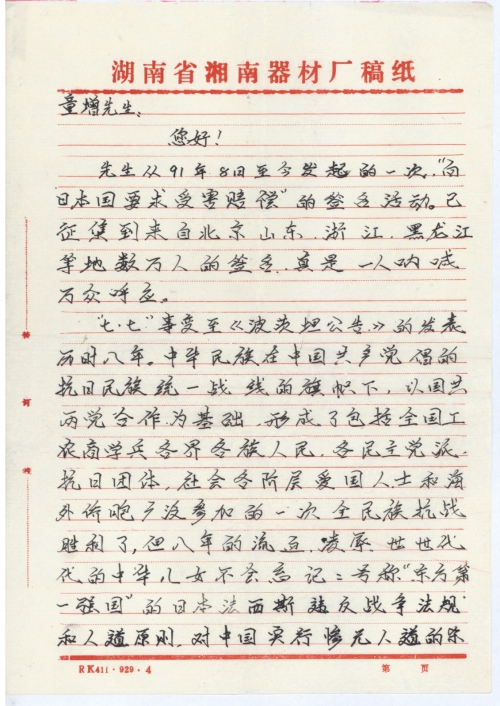 湖南省湘南器材厂稿纸
童增先生:
您好!
先生从91年8日至今发起的一次,"向
日本国要求受害赔偿"的签名活动。已
征集到来自北京山东、浙江、黑龙江
等地数万人的签名,真是一人呐喊
万众呼应。
"七·七"事变至《波茨坦公告》的发表
历时八年。中华民族在中国共产党倡的
抗日民族统一战线的旗帜下,以国共
两党合作为基础,形成了包括全国工
农商学兵各界各族人民,各民主党派、
抗日团体,社会各阶层爱国人士和海
外侨胞广泛参加的一次全民族抗战
胜利了,但八年的流血、凌辱,世世代
代的中华儿女不会忘记:号称"东方第
一强国"的日本法西斯违反战争法规
和人道原则,对中国实行惨无人道的
装
订
RK411·929·4
第 页